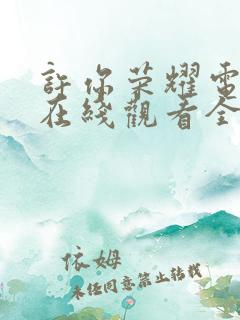 許你荣耀電
在綫觀看全
依姆
未经同意禁止转载